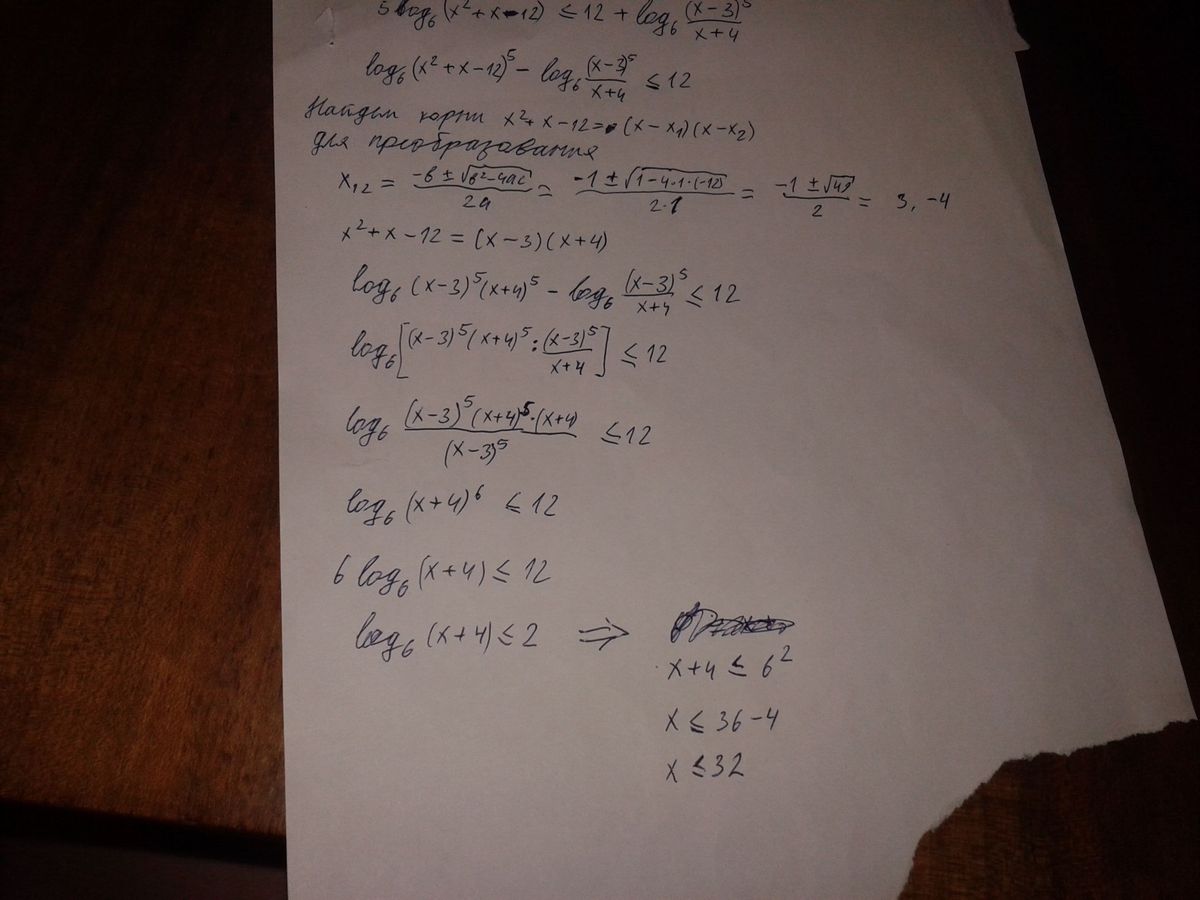 5 log₆ (x² + x - 12) ≤ 12 + log₆ (x-3)⁵/(x+4)
log₆ (x² + x - 12)⁵ - log₆ (x-3)⁵/(x+4) ≤ 12
Найдем корни x² + x - 12 = (x - x₁)(x - x₂)
для преобразования
x₁,₂ = (-в ± √(в² - 4ac))/2a = (-1 ± √(1 - 4·1·(-12)))/(2·1) = (-1 ± √49)/2 = 3, -4
x² + x - 12 = (x - 3)(x + 4)
log₆ (x-3)⁵(x+4)⁵ - log₆ (x-3)⁵/(x+4) ≤ 12
log₆ [(x-3)⁵(x+4)⁵ : (x-3)⁵/(x+4)] ≤ 12
log₆ ((x-3)⁵(x+4)⁵·(x+4))/(x-3)⁵ ≤ 12
log₆ (x+4)⁶ ≤ 12
6 log₆ (x+4) ≤ 12
log₆ (x+4) ≤ 2 ⇒
x + 4 ≤ 6²
x ≤ 36 - 4
x ≤ 32